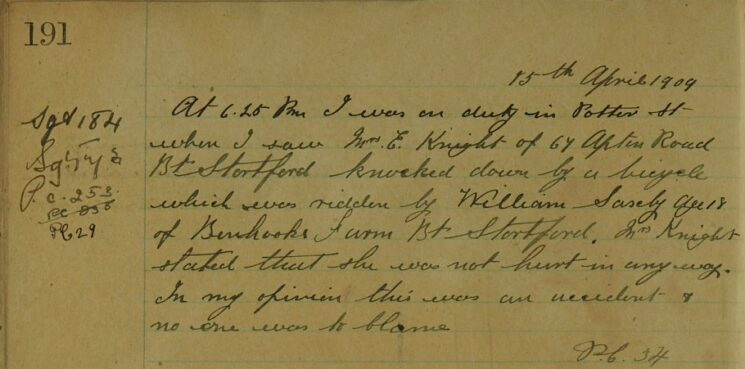 191
15th April 1909
Sgt 184
P.C. 253
PC 29
At 6.25 Pm I was on duty in Potter St
when I saw Mrs. E. Knight of 64 Apton Road
Bt Stortford knocked down by a bicycle
which was ridden by William Sarely age 18
of Benhooks Farm Bt Stortford. Mrs Knight
stated that she was not hurt in any way.
In my opinion this was an accident &
no one was to blame
P.C. 34